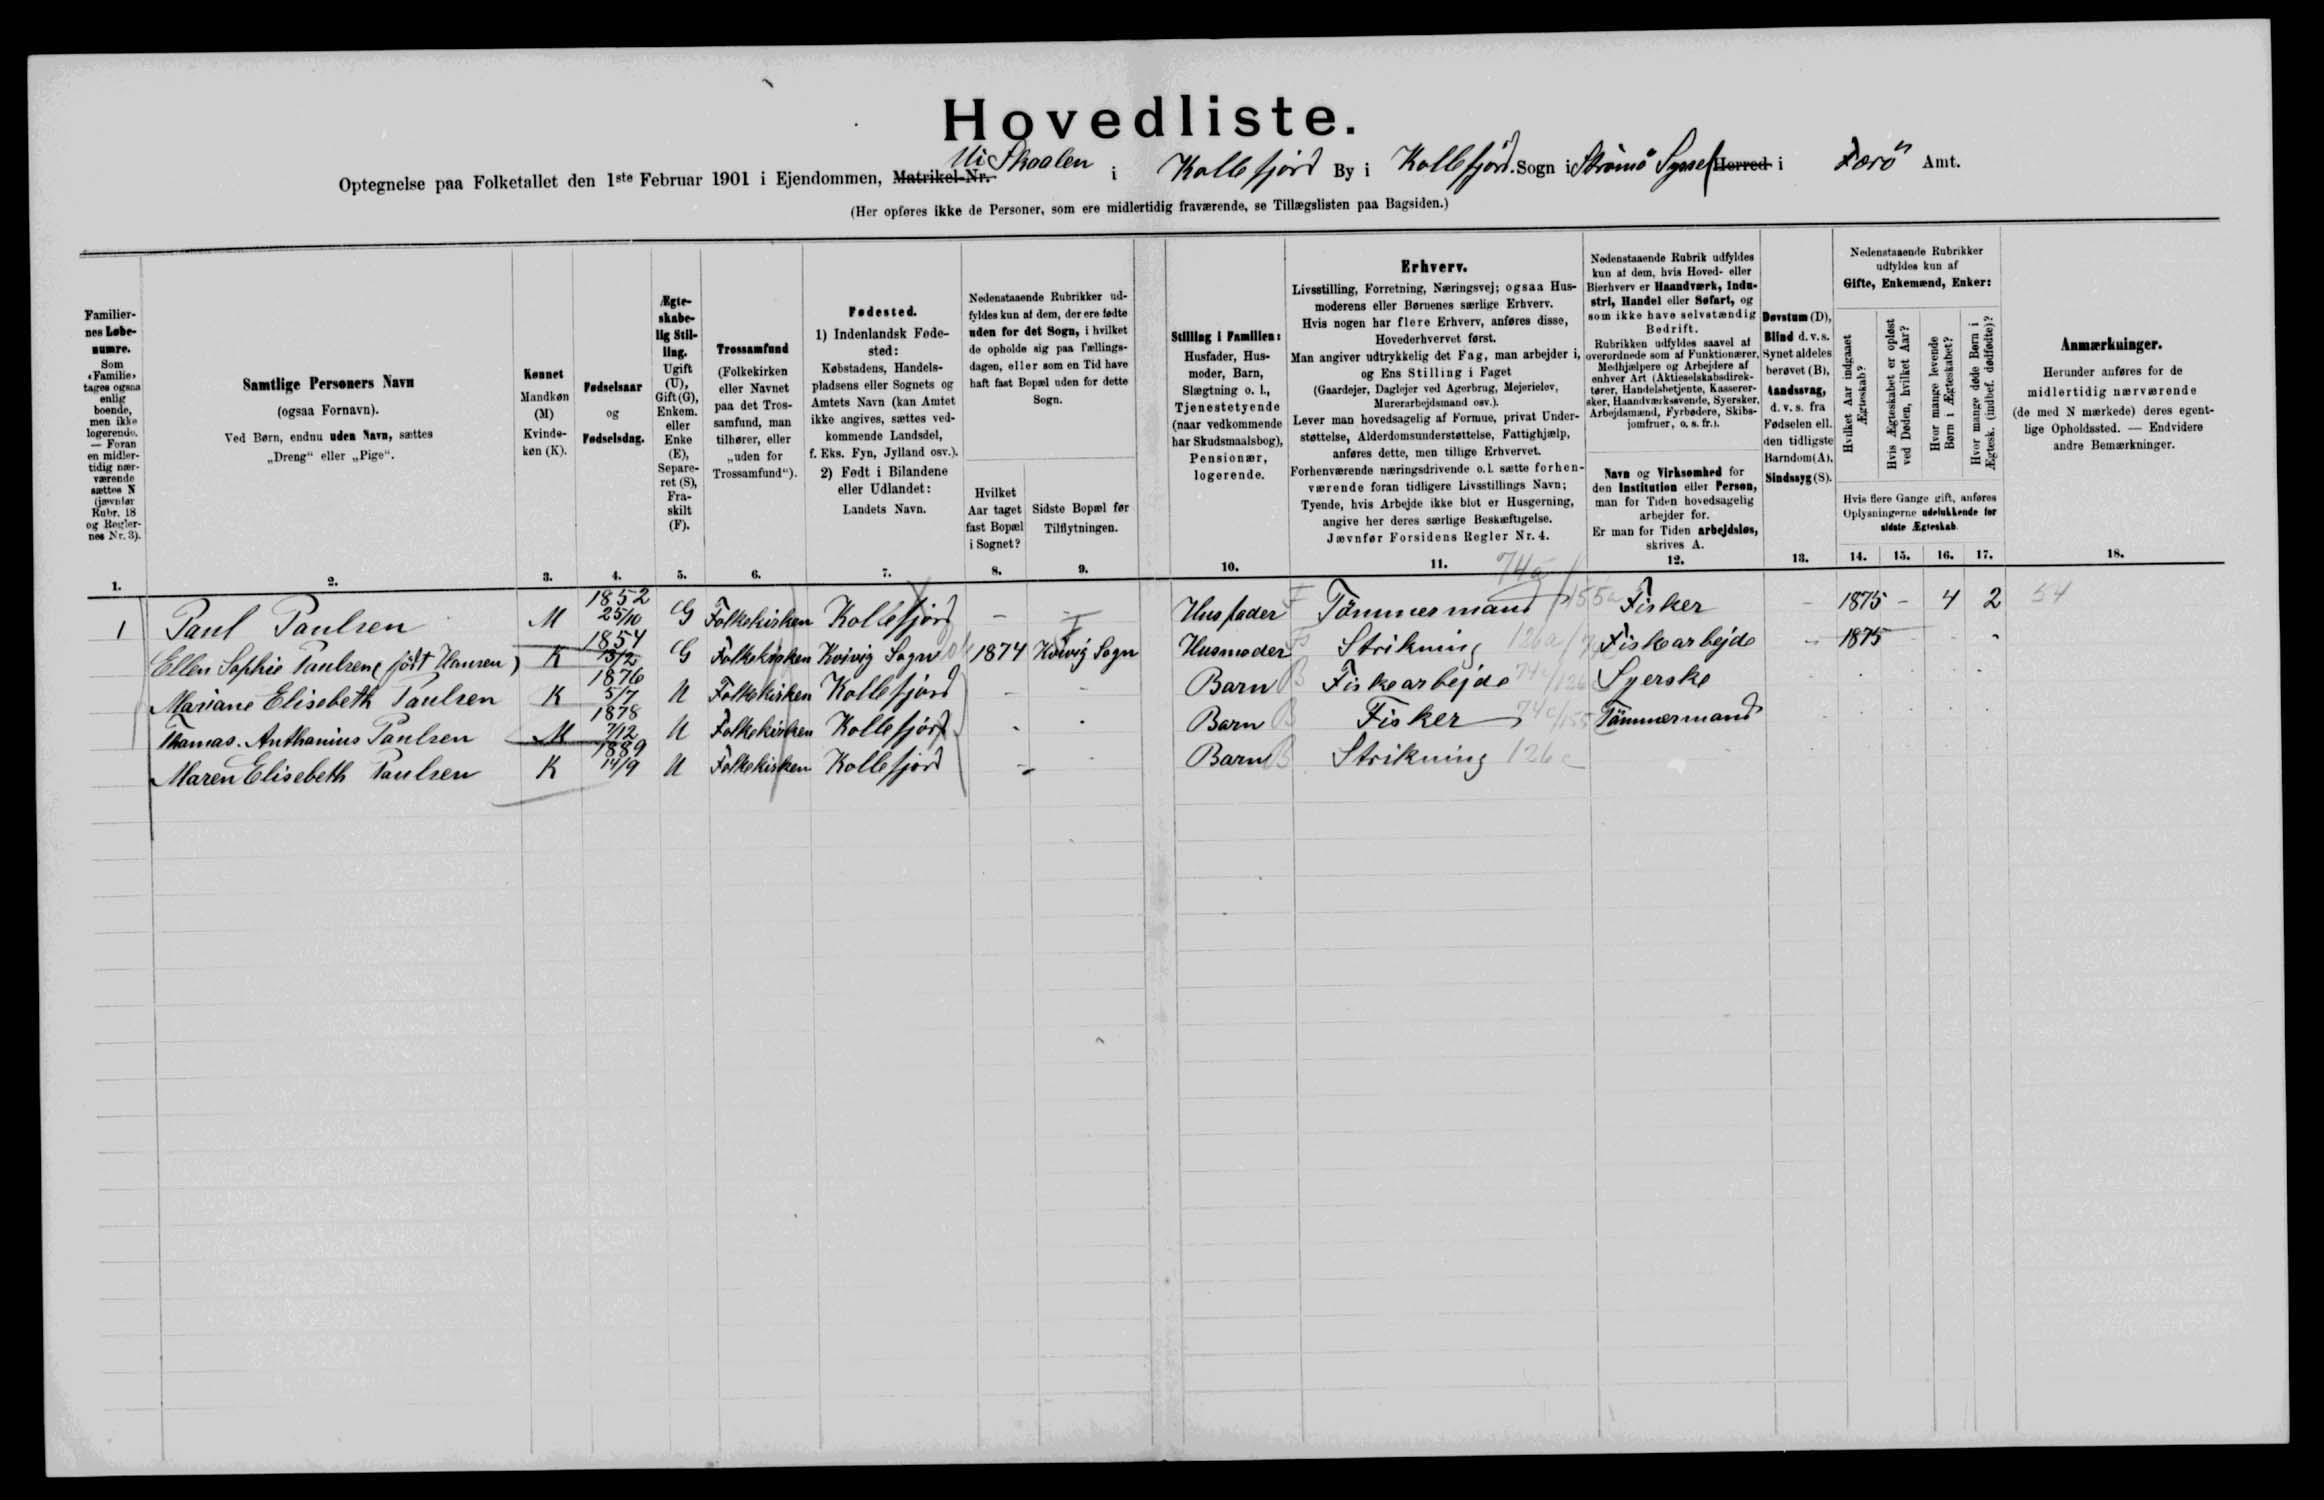 Hovedliste.
Optegnelse paa Folketallet den 1ste Februar 1901 i Ejendommen, Matrikel-Nr. Ui Skaalen i Kollefjörd By i Kollefjörd. Sogn i Strömö Syssel Herred i Færö Amt.
(Her opføres ikke de Personer, som ere midlertidig fraværende, se Tillægslisten paa Bagsiden.)
Familier-
nes Løbe-
numre.
Som
«Familie»
tages ogsaa
enlig
boende,
men ikke
logerende.
— Foran
en midler-
tidig nær-
værende
sættes N
(jævnfør
Rubr. 18
og Regler-
nes Nr. 3).
1.
Samtlige Personers Navn
(ogsaa Fornavn).
Ved Børn, endnu uden Navn, sættes
„Dreng“ eller „Pige“.
2.
Kønnet
Mandkøn
(M)
Kvinde-
køn (K).
3.
Fødselsaar
og
Fødselsdag.
4.
Ægte-
skabe-
lig Stil-
ling.
Ugift
(U),
Gift (G),
Enkem.
eller
Enke
(E),
Separe-
ret (S),
Fra-
skilt
(F).
5.
Trossamfund
(Folkekirken
eller Navnet
paa det Tros-
samfund, man
tilhører, eller
„uden for
Trossamfund“).
6.
Fødested.
1) Indenlandsk Føde-
sted:
Købstadens, Handels-
pladsens eller Sognets og
Amtets Navn (kan Amtet
ikke angives, sættes ved-
kommende Landsdel,
f. Eks. Fyn, Jylland osv.).
2) Født i Bilandene
eller Udlandet:
Landets Navn.
7.
Nedenstaaende Rubrikker ud-
fyldes kun af dem, der ere fødte
uden for det Sogn, i hvilket
de opholde sig paa Tællings-
dagen, eller som en Tid have
haft fast Bopæl uden for dette
Sogn.
Hvilket
Aar taget
fast Bopæl
i Sognet?
8.
Sidste Bopæl før
Tilflytningen.
9.
Stilling i Familien:
Husfader, Hus-
moder, Barn,
Slægtning o. l.,
Tjenestetyende
(naar vedkommende
har Skudsmaalsbog),
Pensionær,
logerende.
10.
Erhverv.
Livsstilling, Forretning, Næringsvej; ogsaa Hus-
moderens eller Børnenes særlige Erhverv.
Hvis nogen har flere Erhverv, anføres disse,
Hovederhvervet først.
Man angiver udtrykkelig det Fag, man arbejder i,
og Ens Stilling i Faget
(Gaardejer, Daglejer ved Agerbrug, Mejerielev,
Murerarbejdsmand osv.).
Lever man hovedsagelig af Formue, privat Under-
støttelse, Alderdomsunderstøttelse, Fattighjælp,
anføres dette, men tillige Erhvervet.
Forhenværende næringsdrivende o. l. sætte forhen-
værende foran tidligere Livsstillings Navn;
Tyende, hvis Arbejde ikke blot er Husgerning,
angive her deres særlige Beskæftigelse.
Jævnfør Forsidens Regler Nr. 4.
11.
Nedenstaaende Rubrik udfyldes
kun af dem, hvis Hoved- eller
Bierhverv er Haandværk, Indu-
stri, Handel eller Søfart, og
som ikke have selvstændig
Bedrift.
Rubrikken udfyldes saavel af
overordnede som af Funktionærer,
Medhjælpere og Arbejdere af
enhver Art (Aktieselskabsdirek-
tører, Handelsbetjente, Kasserer-
sker, Haandværkssvende, Syersker,
Arbejdsmænd, Fyrbødere, Skibs-
jomfruer, o. s. fr.).
Navn og Virksomhed for
den Institution eller Person,
man for Tiden hovedsagelig
arbejder for.
Er man for Tiden arbejdsløs,
skrives A.
12.
Døvstum (D),
Blind d. v. s.
Synet aldeles
berøvet (B),
Aandssvag,
d. v. s. fra
Fødselen ell.
den tidligste
Barndom (A),
Sindssyg (S).
13.
Nedenstaaende Rubrikker
udfyldes kun af
Gifte, Enkemænd, Enker:
Hvilket Aar indgaaet
Ægteskab?
Hvis Ægteskabet er opløst
ved Døden, hvilket Aar?
Hvor mange levende
Børn i Ægteskabet?
Hvor mange døde Børn i
Ægtesk. (indbef. dødfødte)?
Hvis flere Gange gift, anføres
Oplysningerne udelukkende for
sidste Ægteskab.
14. 15. 16. 17.
Anmærkninger.
Herunder anføres for de
midlertidig nærværende
(de med N mærkede) deres egent-
lige Opholdssted. — Endvidere
andre Bemærkninger.
18.
1 Paul Paulsen M 1852 25/10 G Folkekirken Kollefjörd - - Husfader F Tömmermand 74a/155a Fisker - 1875 - 4 2 54
Ellen Sophie Paulsen (födt Hansen) K 1854 13/2 G Folkekirken Kvivig Sogn 1874 Kvivig Sogn Husmoder Strikning 126a Fiskearbejde - 1875 - - -
Mariane Elisebeth Paulsen K 1876 5/7 U Folkekirken Kollefjörd - - Barn B Fiskearbejde 74c/126 Syerske
Thomas. Anthanius Paulsen M 1878 7/12 U Folkekirken Kollefjörd - - Barn B Fisker 74c/155 Tömmermand
Maren Elisebeth Paulsen K 1889 14/9 U Folkekirken Kollefjörd - - Barn B Strikning 126c